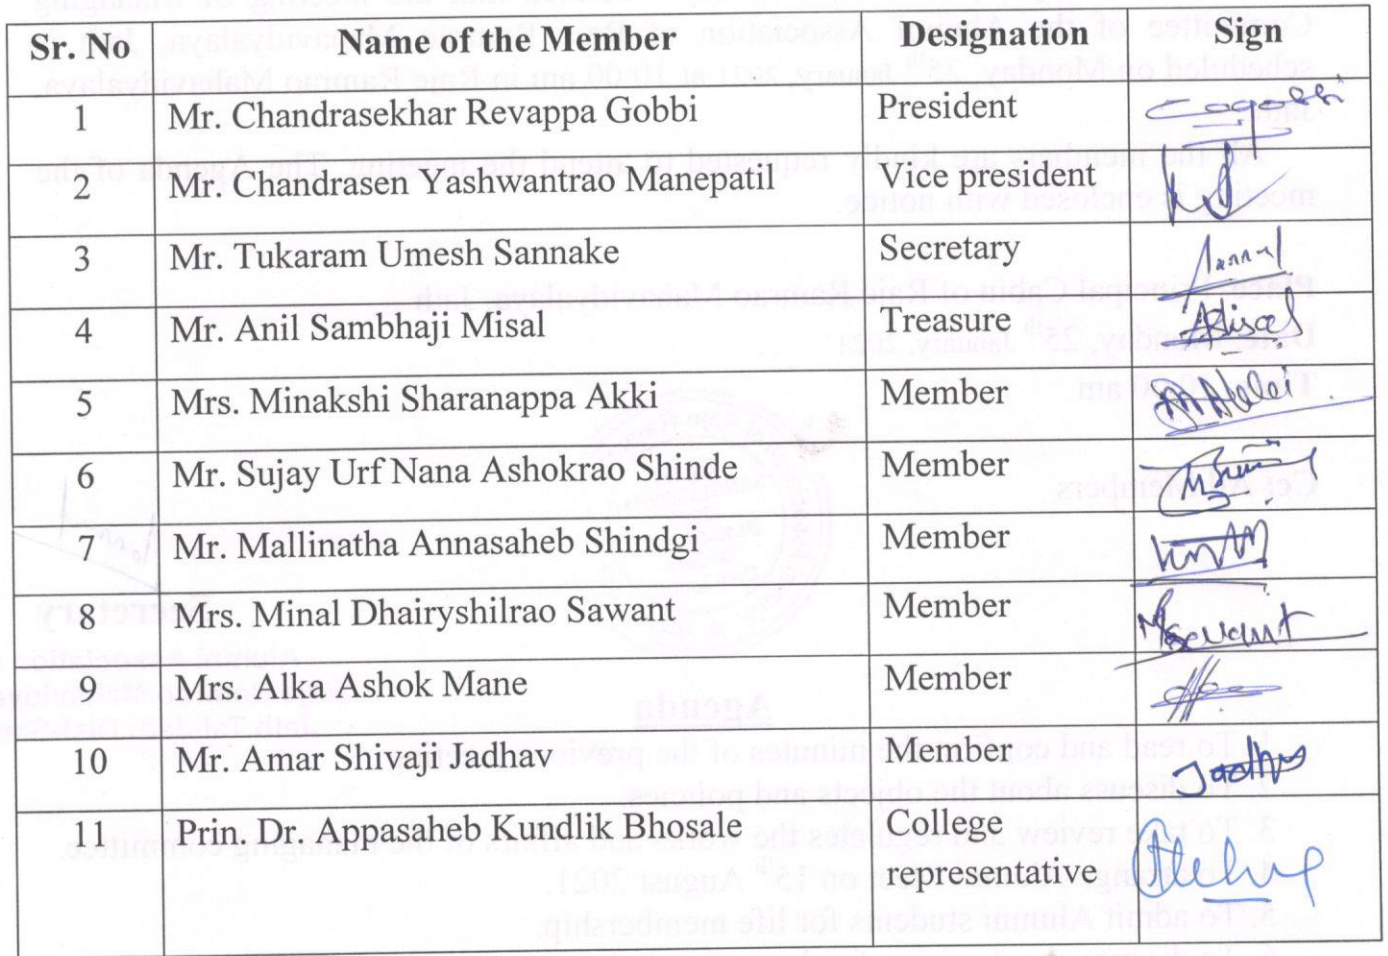 Sr. No Name of the Member Designation Sign
1 Mr. Chandrasekhar Revappa Gobbi President Cogobbi
2 Mr. Chandrasen Yashwantrao Manepatil Vice president
3 Mr. Tukaram Umesh Sannake Secretary
4 Mr. Anil Sambhaji Misal Treasure
5 Mrs. Minakshi Sharanappa Akki Member
6 Mr. Sujay Urf Nana Ashokrao Shinde Member
7 Mr. Mallinatha Annasaheb Shindgi Member
8 Mrs. Minal Dhairyshilrao Sawant Member
9 Mrs. Alka Ashok Mane Member
10 Mr. Amar Shivaji Jadhav Member
11 Prin. Dr. Appasaheb Kundlik Bhosale College
representative